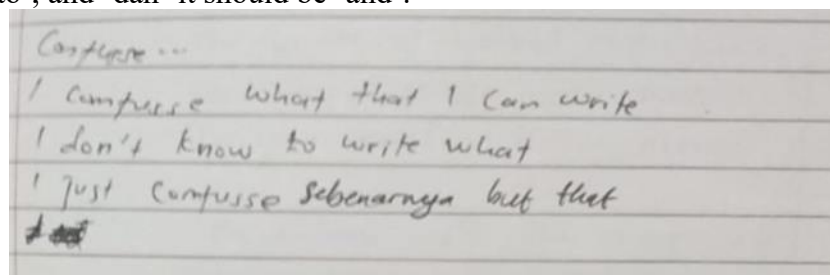 to", and "dan" it should be "and".
Confuse...
I comfusse what that I can write
I don't know to write what
I just comfusse sebenarnya but that